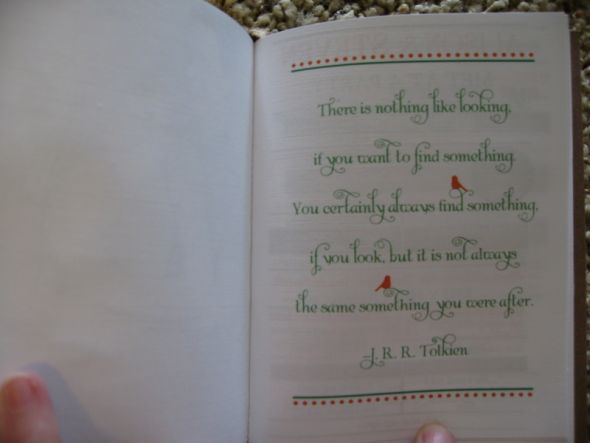 There is nothing like looking,
if you want to find something.
You certainly always find something,
if you look, but it is not always
the same something you were after.
-J. R. R. Tolkien